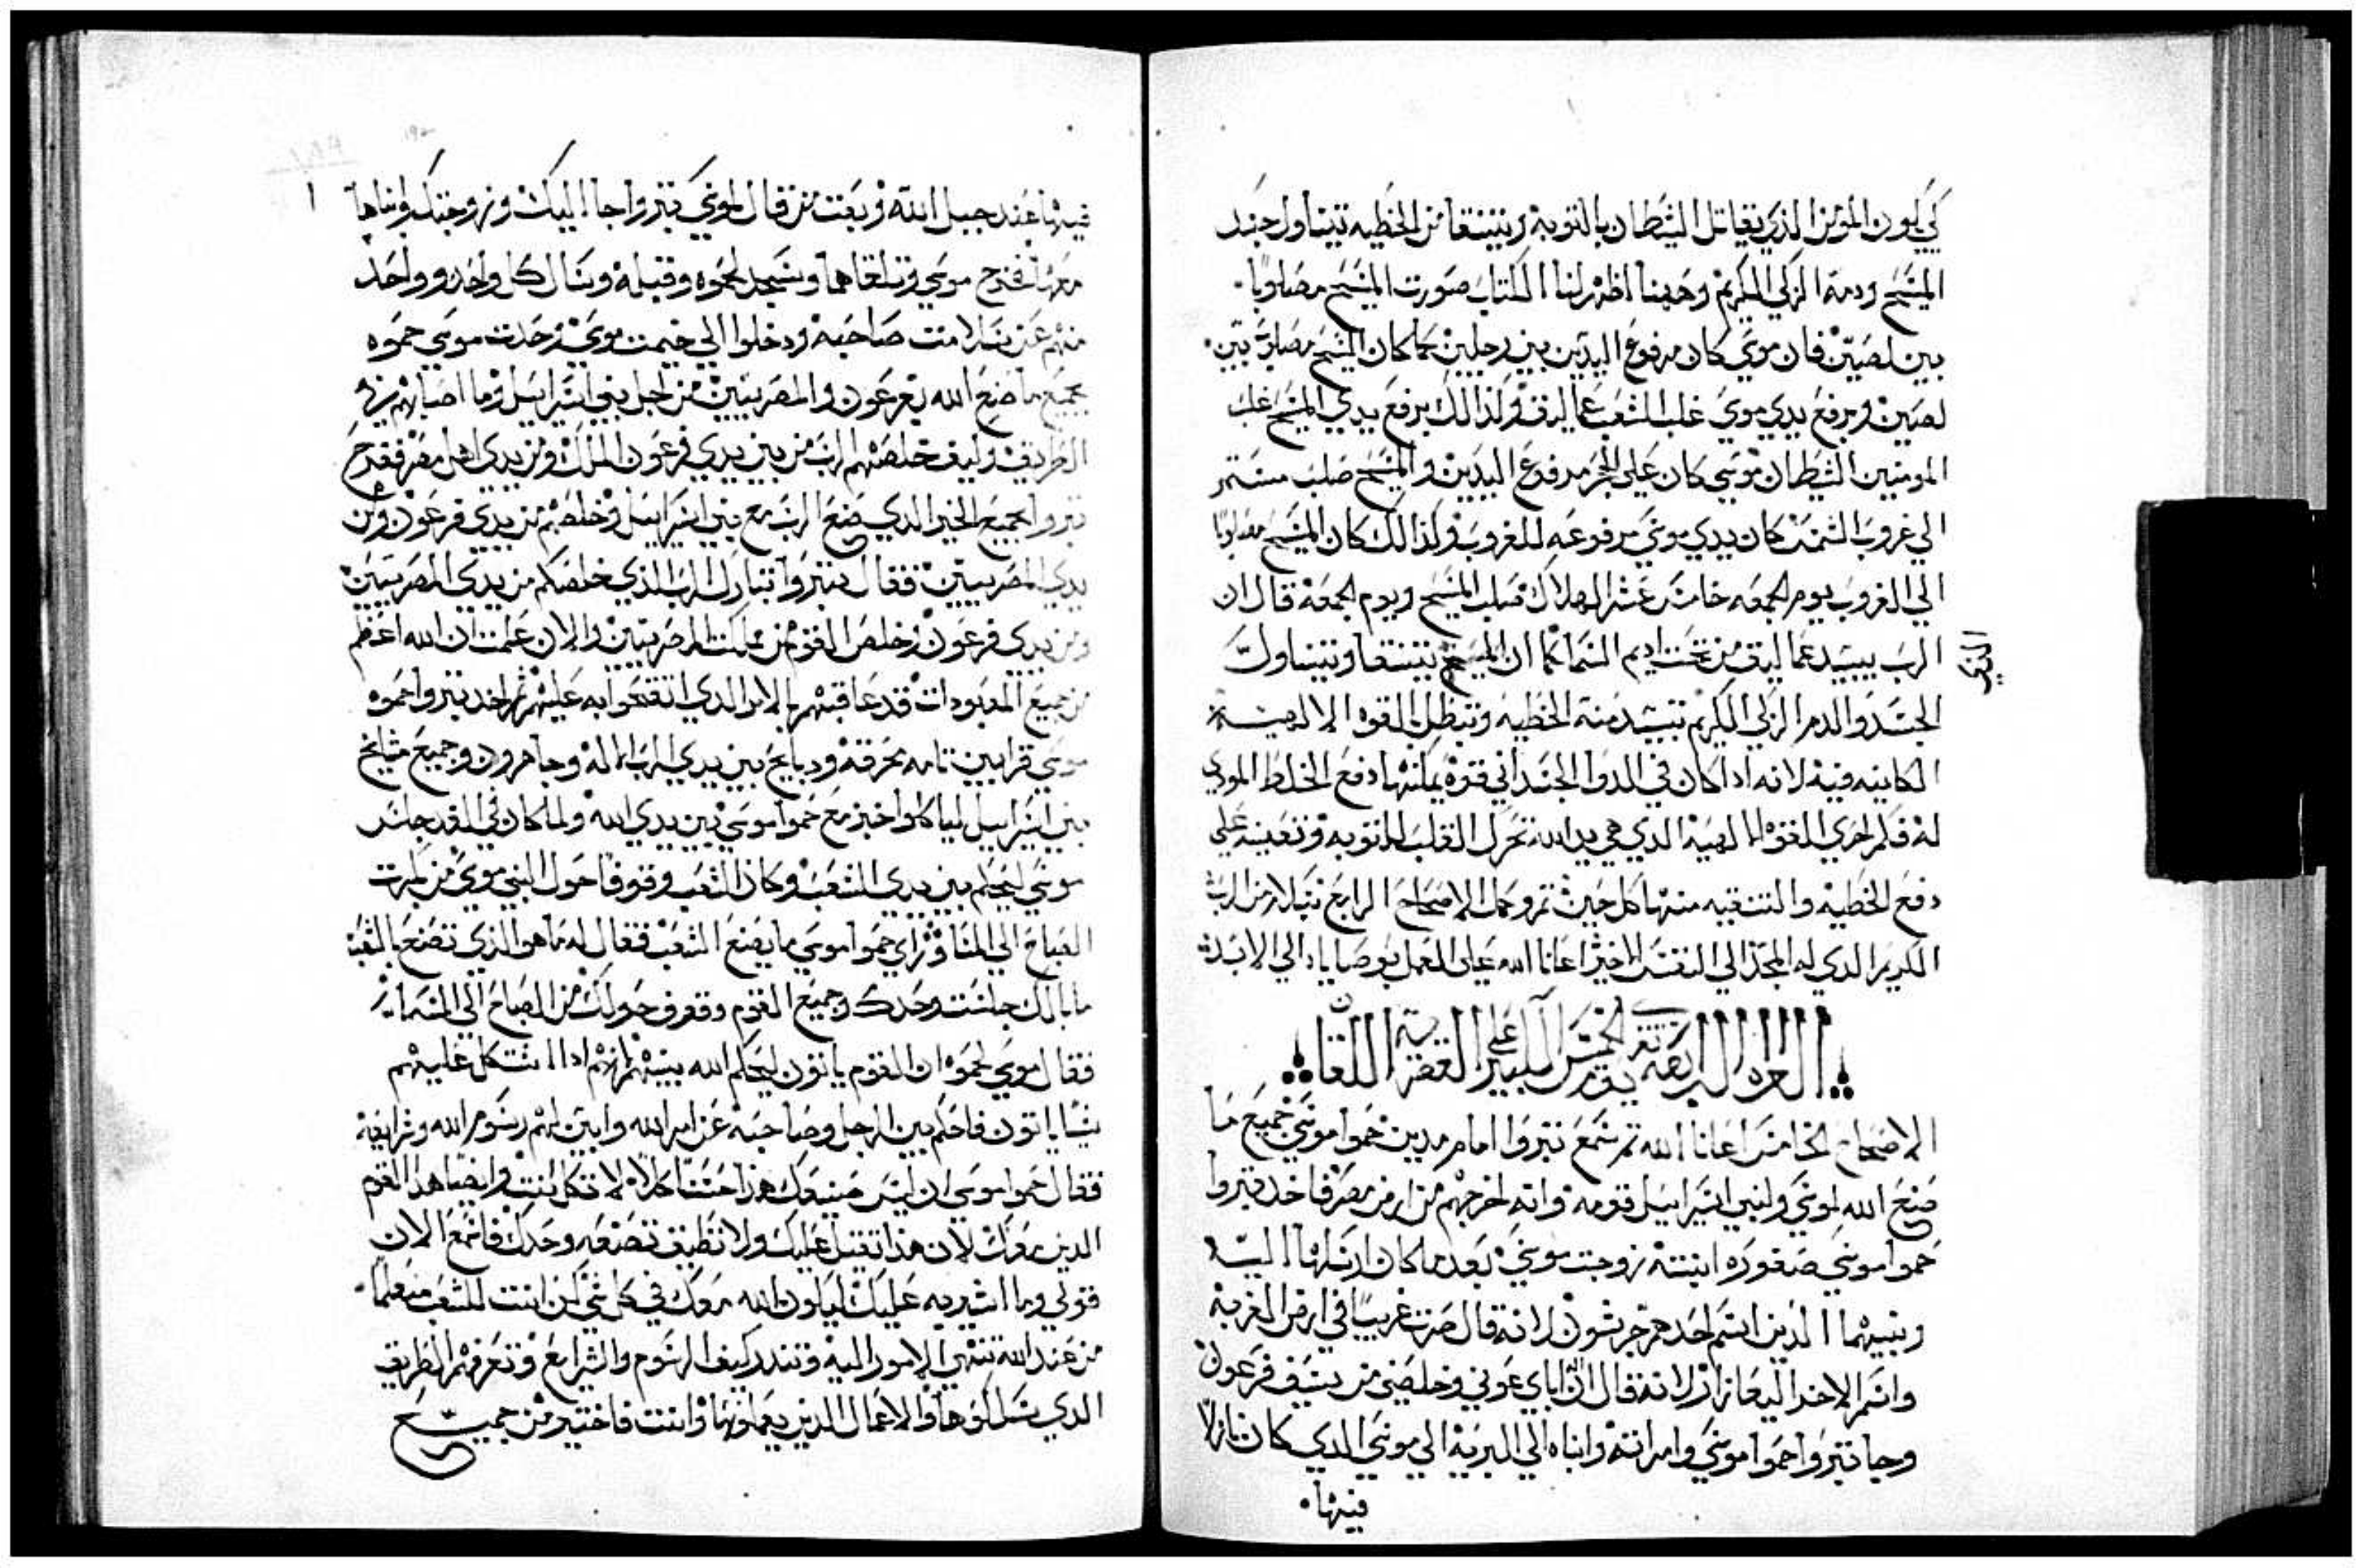 كي يكون المومن الذي يقاتل الشيطان بالتوبة ويتنقا من الخطيه يتناول جسد
المسيح ودمه الزكي الكريم وههنا اظهر لنا الكتاب صورت المسيح مصلوبا
بين لصين فان موسي كان مرفوع اليدين بين رجلين كما كان المسيح مصلوب بين
لصين وبرفع يدي موسي غلب الشعب عماليق وكذالك برفع يدي المسيح غلب
المومنين الشيطان موسي كان علي الحجر مرفوع اليدين والمسيح صلب مستمر
الي غروب الشمس كان يدي موسي مرفوعه للغروب وكذالك كان المسيح مصلوبا
الي الغروب يوم الجمعه خامس عشر الهلال صلب المسيح ويوم الجمعة قال ان
الرب يبيد عماليق من تحت اديم السما كما ان المسيح يتنقا ويتناول
الجسد والدم الزكي الكريم تبيد منه الخطيه وتبطل بالقوه الالهية
الكاينه فيه لانه اذا كان في الدوا الجسداني قوة يمكنها دفع الخلط الموذي
له فكم احري للقوة الالهية الذي هي يد الله تحرك القلب للتوبه وتعينه علي
دفع الخطية والتنقيه منها كل حين تم وكمل الاصحاح الرابع بسلام من الرب
الكريم الذي له المجد الي النفس الاخير اعانا الله علي العمل بوصاياه الي الابد
القراه الرابعه يوم الخميس الكبير علي
الاصحاح الخامس اعانا الله ثم سمع يتروا امام مدين حموا موسي جميع ما
صنع الله لموسي ولبني اسراييل قومه وانه اخرجهم من ارض مصر فاخذ يتروا
حموا موسي صفوره ابنته زوجت موسي بعد ما كان ارسلها اليه
وبنيهما الذين اسم احدهم جرشون لانه قال صرت غريبا في ارض الغربه
واسم الاخر اليعازر لانه قال ان اله اباي عوني وخلصني من سيف فرعون
وجا يتروا حموا موسي وامراته وابناه الي البرية الي موسي الذي كان نازلا
فيها
فيها عند جبل الله وبعت من قال لموسي يتروا جا اليك وزوجتك وابناها
معها فخرج موسي وتلقاهما وسجد لحموه وقبله وسال كل واحد وواحد
منهم عن سلامت صاحبه ودخلوا الي خيمت موسي وحدت موسي حموه
بجميع ما صنع الله بفرعون والمصريين من اجل بني اسراييل وما اصابهم في
الطريق وكيف خلصهم الرب من بين يدي فرعون الملك ومن يدي اهل مصر ففرح
يتروا بجميع الخير الذي صنع الرب مع بني اسراييل وخلصهم من يدي فرعون ومن
يدي المصريين فقال يتروا تبارك الرب الذي خلصكم من يدي المصريين
ومن يدي فرعون وخلص القوم من مملكت المصريين والان علمت ان الله اعظم
من جميع المعبودات قد عاقبهم بالامر الذي اتقحوا به عليهم ثم اخد يتروا حموه
موسي قرابين تامه محرقة ودبايح بين يدي الرب الاله وجا هرون وجميع مشايخ
بني اسراييل لياكلوا خبز مع حموا موسي بين يدي الله ولما كان في الغد جلس
موسي ليحكم بين يدي الشعب وكان الشعب وقوفا حول النبي موسي من بكرت
الصباح الي المسا وراي حموا موسي ما يصنع الشعب فقال له ما هو الذي تصنع بالشعب
ما بالك جلست وحدك وجميع القوم وقوف حولك من الصباح الي المسا
فقال موسي لحموه ان القوم ياتون ليحكم الله بينهم لانهم اذا اشتكل عليهم
شيا ياتون فاحكم بين الرجل وصاحبه عن امر الله وابين لهم رسوم الله وشرايعه
فقال حموا موسي ان ليس صنيعك هذا حسنا كلالا تكل انت وايضا هذا القوم
الذين معك لان هذا تقيل عليك ولا تطيق تصنعه وحدك فاسمع الان
قولي وما اشير به عليك ليكون الله معك في كل شي كن انت للشعب متعلما
من عند الله تنهي الامور اليه وتندر كيف الرسوم والشرايع وتعرفهم الطريق
الذي يسلكوها والاعمال الذين يعملونها وانت فاختير من جميع